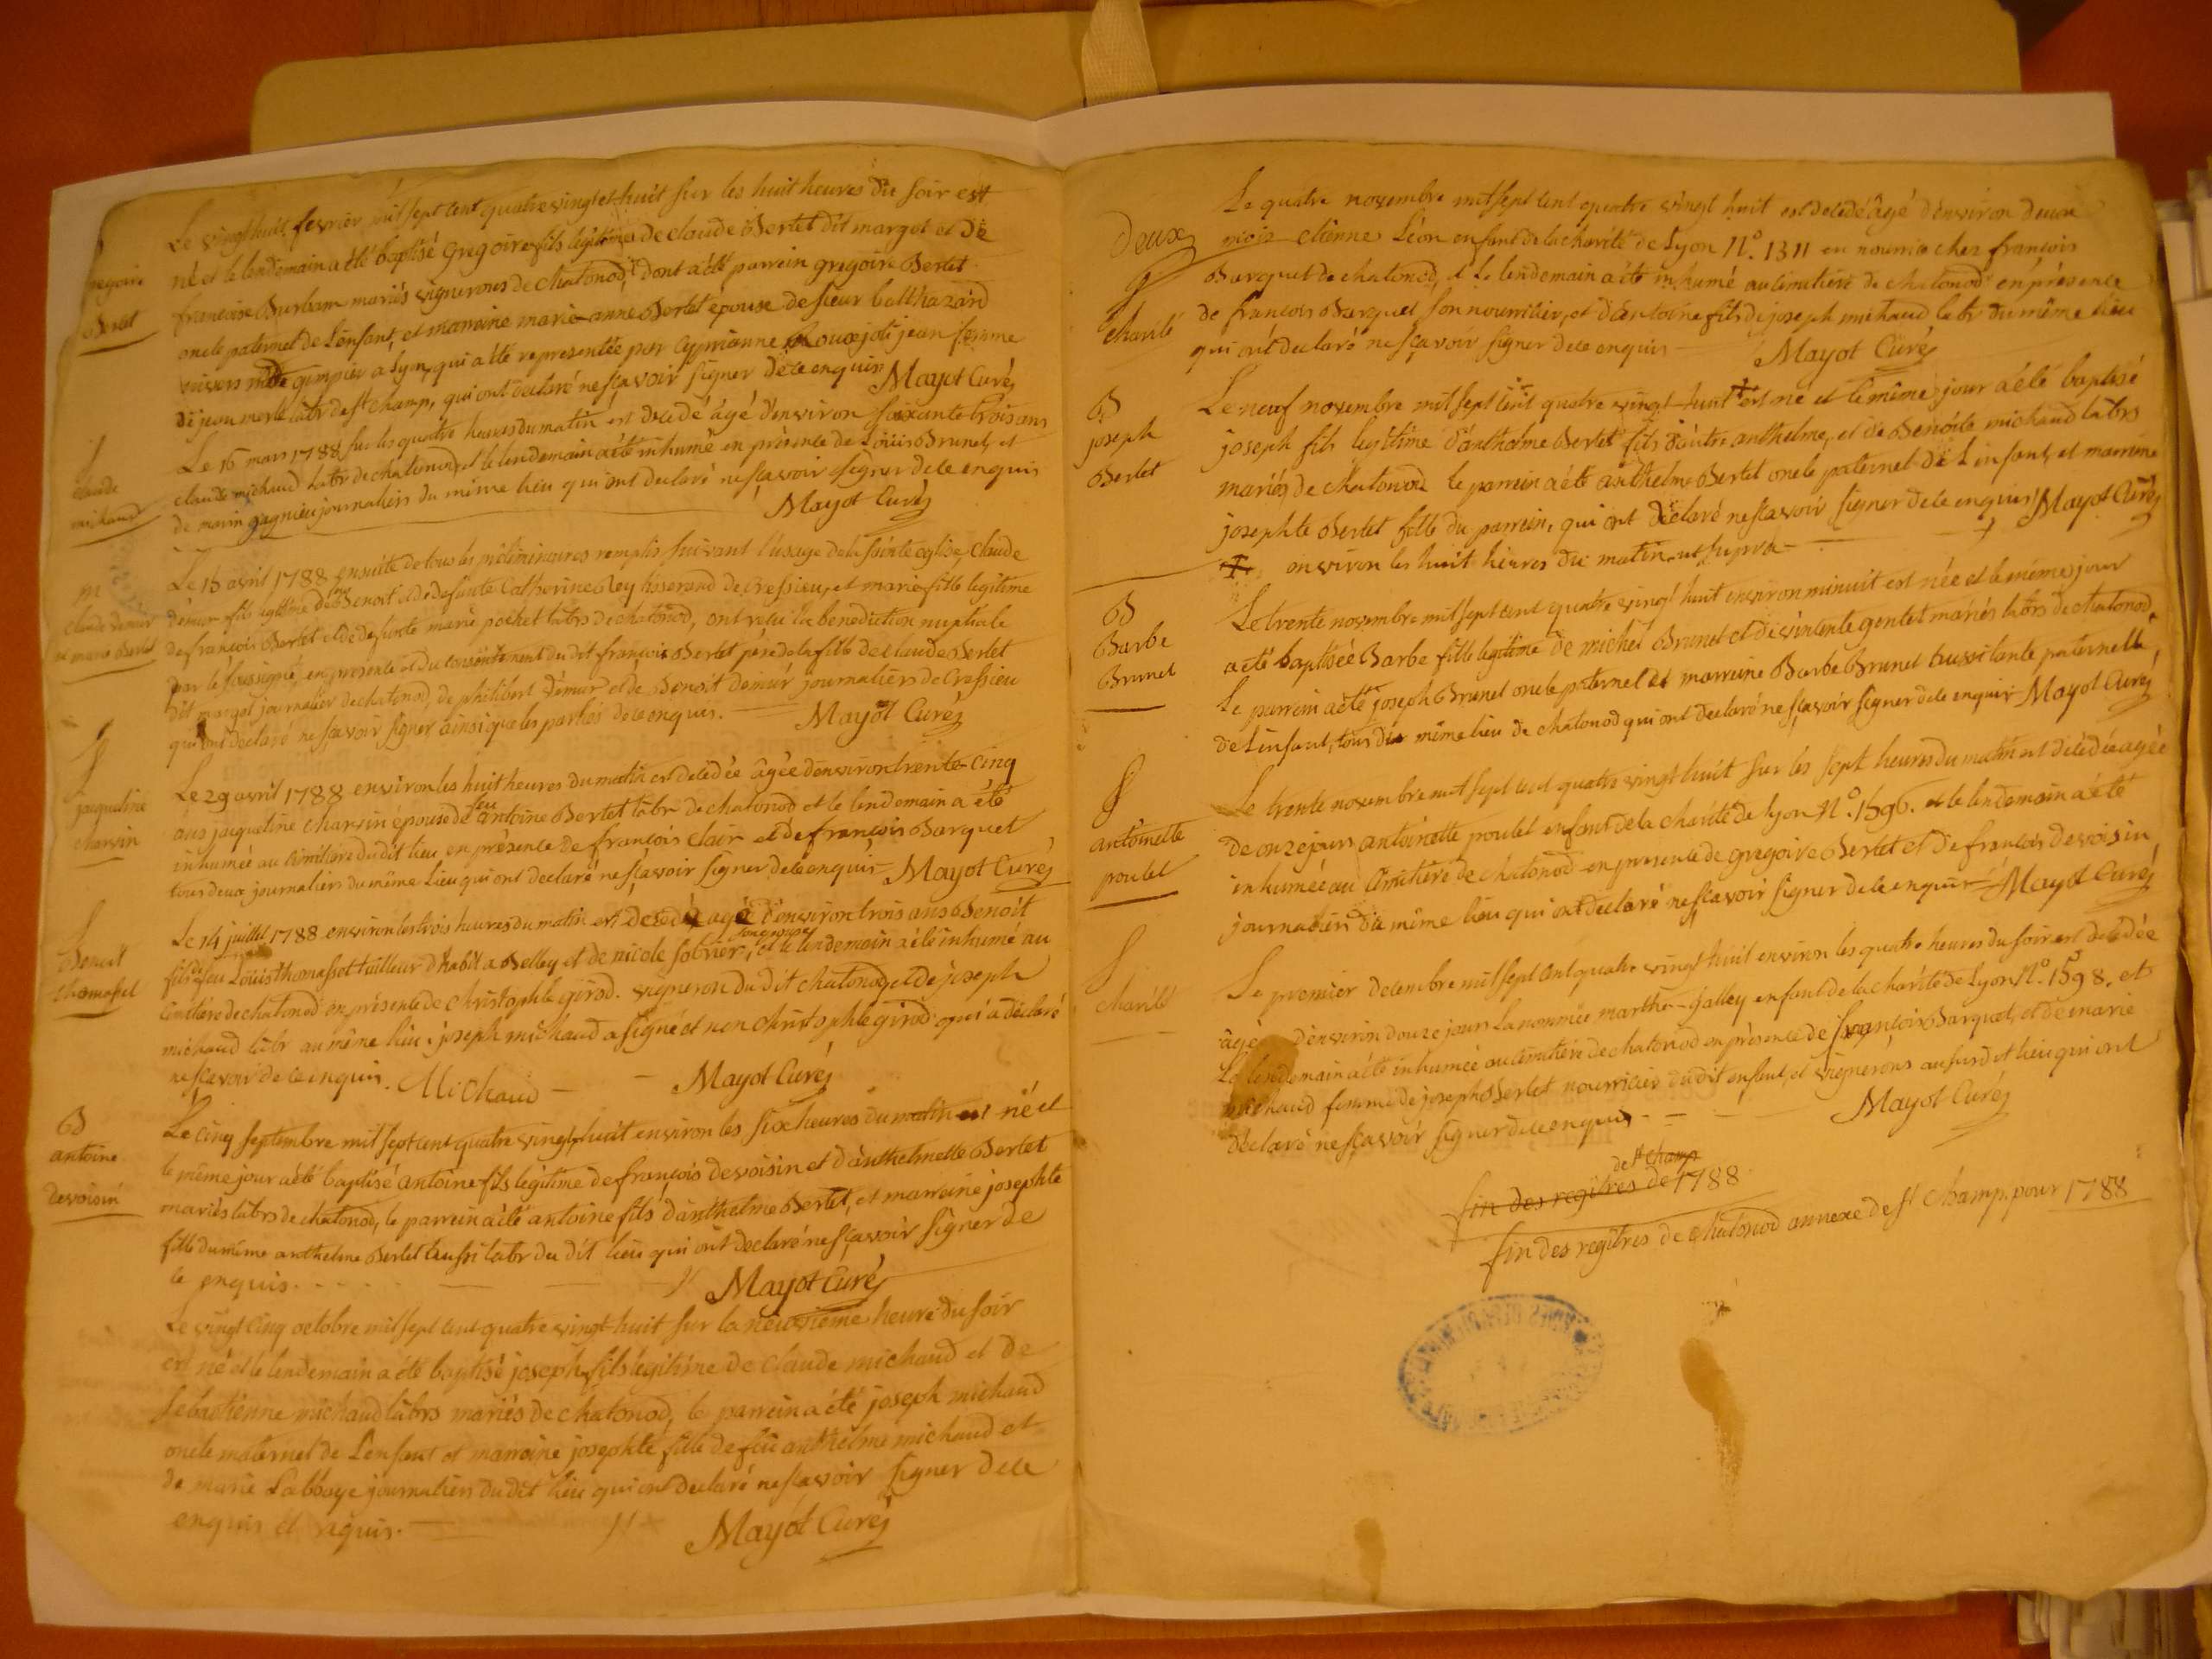 Le vingt huit fevrier mil sept cent quatre vingt et huit sur les huit heures du soir est
né et le lendemain a été baptisé gregoire fils legitime de claude Bertet dit margot et de
francoise Burbam mariés vignerons de chatonod, dont a été parrein gregoire Bertet
oncle paternel de l'enfant, et marraine marie-anne Bertet épouse de sieur balthazard
gimpier a Lyon, qui a été representée par Cyprianne Roux joli jean femme
de jean merle labr de st champ, qui ont declaré ne sçavoir signer de ce enquis Mayot Curé
gregoire
Bertet
Le 16 mars 1788 sur les quatre heures du matin est decedé âgé d'environ soixante trois ans
claude michaud labr de chatonod, et le lendemain a été inhumé en présence de Louis Brunet, et
de marin gagnieu journaliers du même lieu qui ont declaré ne sçavoir signer de ce enquis
Mayot Curé
S
claude
michaud
Le 15 avril 1788 ensuite de tous les préliminaires remplis suivant l'usage de la sainte eglise, claude
démur fils legitime de feu Benoit et de defunte Catherine Rey tisserand de Cressieu, et marie fille legitime
de françois Bertet et de defunte marie pochet labrs de chatonod, ont reçu la benediction nuptiale
par le soussigné, en presence et du consentement du dit françois Bertet pere de la fille de claude Bertet
dit margot journalier de chatonod, de philibert démur et de Benoit demur journaliers de Cressieu
qui ont declaré ne sçavoir signer ainsi que les parties de ce enquis. Mayot Curé
m
claude demur
et marie Bertet
Le 29 avril 1788 environ les huit heures du matin est decedée âgée d'environ trente-cinq
ans jacqueline charvin épouse de feu antoine Bertet labr de chatonod et le lendemain a été
inhumée au cimitiere du dit lieu en présence de françois Clair et de françois Barquet
tous deux journaliers du même lieu qui ont declaré ne sçavoir signer de ce enquis Mayot Curé
S
jacqueline
charvin
Le 14 juillet 1788 environ les trois heures du matin est decedé agé d'environ trois ans Benoit
fils de feu Louis thomasset tailleur d'habit a Belley et de nicole sobrier, son epouse et le lendemain a été inhumé au
cimitiere de chatonod en présence de Christophle girod. vigneron du dit chatonod, et de joseph
michaud labr au même lieu. joseph michaud a signé et non christophle girod qui a déclaré
ne sçavoir de ce enquis. Michaud Mayot Curé
S
Benoit
thomasset
Le cinq septembre mil sept cent quatre vingt huit environ les six heures du matin est né et
le même jour a été baptisé antoine fils légitime de françois devoisin et d'anthelmette Bertet
mariés labrs de chatonod, le parrein a été antoine fils d'anthelme Bertet, et marraine josephte
fille du même anthelme Bertet aussi labr du dit lieu qui ont declaré ne sçavoir signer de
ce enquis. Mayot Curé
B
antoine
devoisin
Le vingt cinq octobre mil sept cent quatre vingt huit sur la neuvieme heure du soir
est né et le lendemain a été baptisé joseph fils legitime de claude michaud et de
sebastienne michaud labrs mariés de chatonod, le parrein a été joseph michaud
oncle maternel de l'enfant et marraine josephte fille de feu anthelme michaud et
de marie Labbaye journaliers du dit lieu qui ont declaré ne sçavoir signer de ce
enquis et requis. Mayot Curé
Le quatre novembre mil sept cent quatre vingt huit est decedé âgé d'environ deux
mois etienne Léon enfant de la charité de Lyon N.o 1311 en nourrice chez françois
Barquet de chatonod, et le lendemain a été inhumé au cimitiere de chatonod en présence
de françois Barquet son nourricier, et d'antoine fils de joseph michaud labr du même lieu
qui ont declaré ne sçavoir signer de ce enquis Mayot Curé
deux
S
charité
Le neuf novembre mil sept cent quatre vingt huit est né et le même jour a été baptisé
joseph fils legitime d'anthelme Bertet fils d'autre anthelme, et de Benoite michaud labrs
mariés de chatonod le parrein a été anthelme Bertet oncle paternel de l'enfant, et marraine
josephte Bertet fille du parrein, qui ont declaré ne sçavoir signer de ce enquis Mayot Curé
environ les huit heures du matin ut supra
B
joseph
Bertet
Le trente novembre mil sept cent quatre vingt huit environ minuit est née et le même jour
a été baptisée Barbe fille legitime de michel Brunet et de vincente gentet mariés labrs de chatonod.
Le parrein a été joseph Brunet oncle paternel et marraine Barbe Brunet aussi tante paternelle,
de l'enfant, tous du même lieu de chatonod qui ont declaré ne sçavoir signer de ce enquis Mayot Curé
B
Barbe
Brunet
Le trente novembre mil sept cent quatre vingt huit sur les sept heures du matin est décédée agée
de onze jours antoinette poulet enfant de la charité de lyon N.o 1596. et le lendemain a été
inhumée au cimitiere de chatonod en presence de gregoire Bertet et de françois devoisin
journaliers du même lieu qui ont declaré ne sçavoir signer de ce enquis Mayot Curé
S
antoinette
poulet
Le premier decembre mil sept cent quatre vingt huit environ les quatre heures du soir est decedée
âgée d'environ douze jours la nommée marthe Galley enfant de la charité de Lyon N.o 1598. et
Le lendemain a été inhumée au cimitiere de chatonod en présence de françois Barquet, et de marie
michaud femme de joseph Bertet nourricier du dit enfant, et vignerons au susdit lieu qui ont
declaré ne sçavoir signer de ce enquis Mayot Curé
S
charité
de st champ
fin des regitres de 1788
fin des regitres de chatonod annexe de st champ. pour 1788